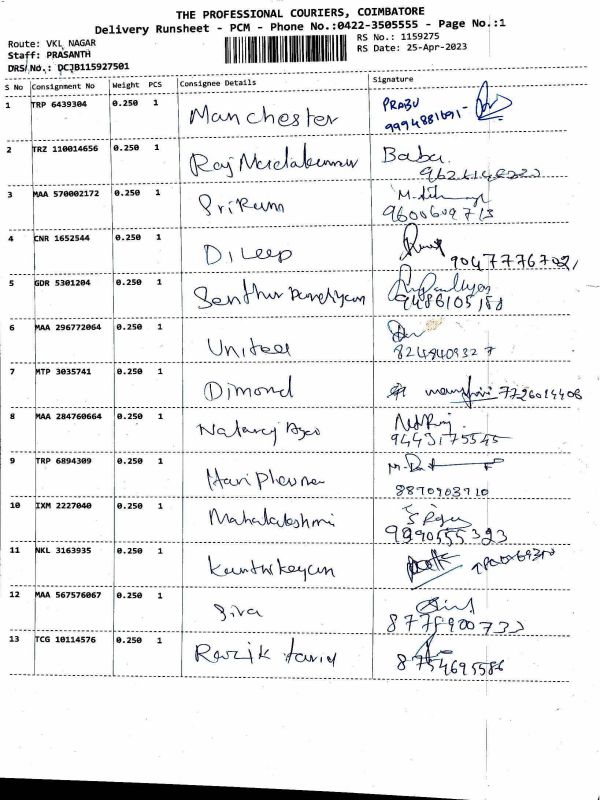 THE PROFESSIONAL COURIERS, COIMBATORE
Delivery Runsheet - PCM - Phone No.:0422-3505555 - Page No.:1
Route: VKL NAGAR
RS No.: 1159275
Staff: PRASANTH
RS Date: 25-Apr-2023
DRS No.: DCJB115927501
S No Consignment No Weight PCS Consignee Details Signature
1 TRP 6439304 0.250 1 Manchester PRABU
9994881691-
2 TRZ 110014656 0.250 1 Raj Baba.
3 MAA 570002172 0.250 1 Sri Ram
9600609713
4 CNR 1652544 0.250 1 DiLeep
9047776702,
5 GDR 5301204 0.250 1 Senthur Pandiyan
9486105188
6 MAA 296772064 0.250 1 United
8248409327
7 MTP 3035741 0.250 1 Dimond 7726014408
8 MAA 284760664 0.250 1 Nataraj
9443175545
9 TRP 6894309 0.250 1
8870903710
10 IXM 2227040 0.250 1 Mahalakshmi
9990555323
11 NKL 3163935 0.250 1 Karthikeyan
12 MAA 567576067 0.250 1 Siva
8778900733
13 TCG 10114576 0.250 1 Razik
8754695586